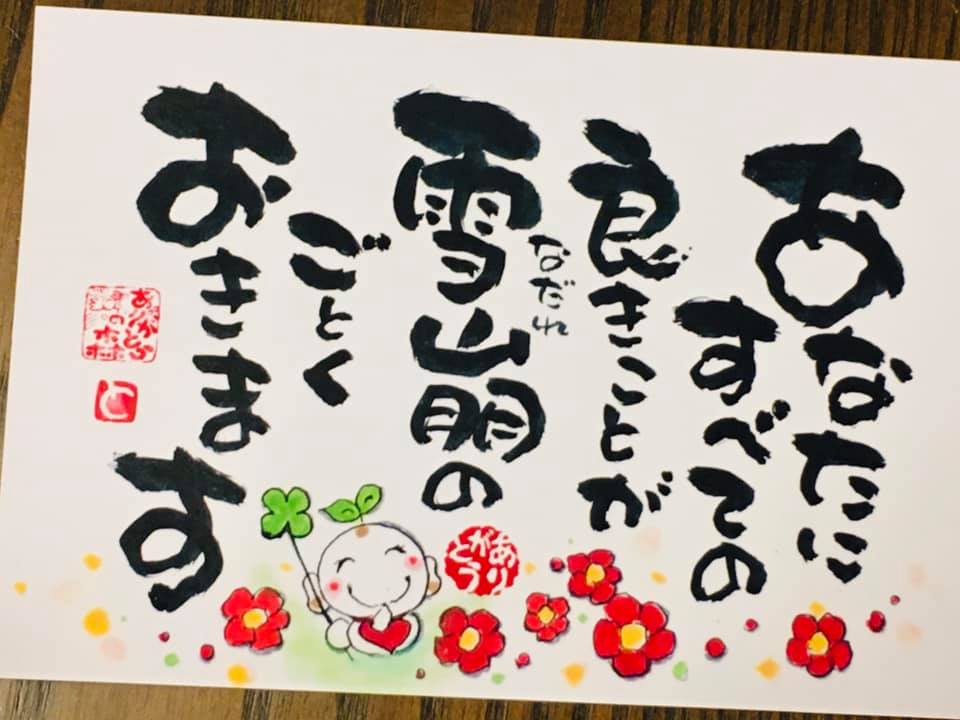 あなたに
すべての
良きことが
なだれ
雪山朋の
ごとく
おきます
ありがとう
ありがとう
の森